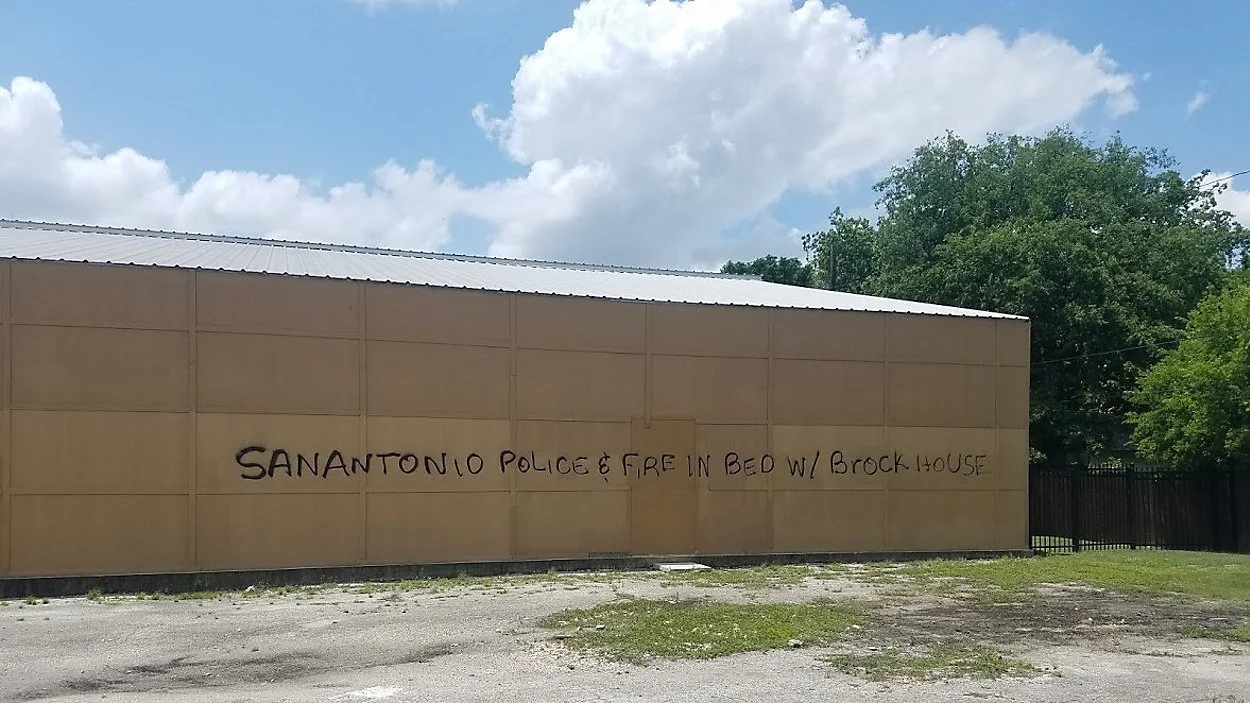 SANANTONIO POLICE & FIRE IN BED W/ BROCK HOUSE